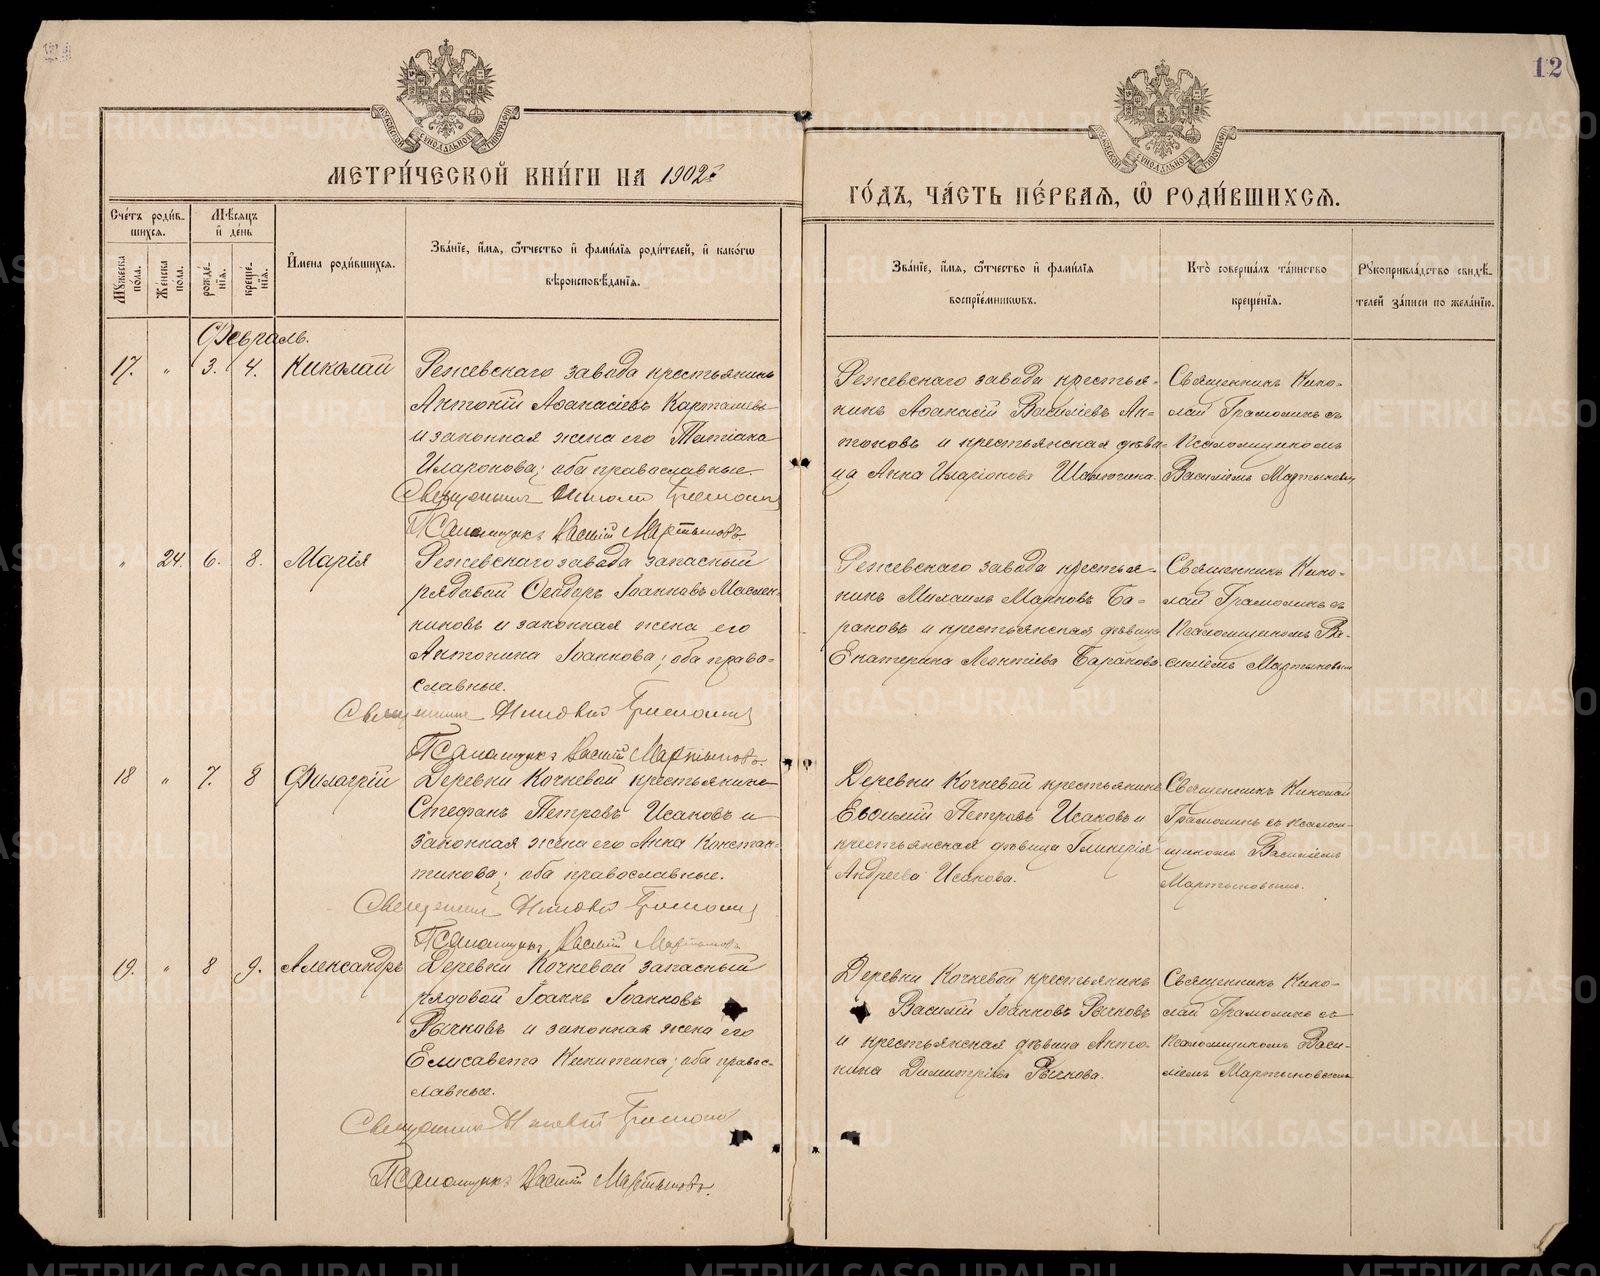 12
МОСКОВСКОЙ СИНОДАЛЬНОЙ ТИПОГРАФІИ
МОСКОВСКОЙ СИНОДАЛЬНОЙ ТИПОГРАФІИ
МЕТРИ́ЧЕСКОЙ КНИ́ГИ НА 1902й
ГО́ДЪ, ЧА́СТЬ ПЕ́РВАѦ, Ѡ҆ РОДИ́ВШИХСѦ.
Сче́тъ роди́вшихсѧ.
Мѣсяцъ и҆ де́нь
Мꙋжеска по́ла.
Же́нска по́ла.
рожде́нїѧ.
креще́нїѧ.
И҆мена роди́вшихсѧ.
Зва́нїе, и҆́мѧ, ѻ҆́тчество и҆ фами́лїѧ роди́телей, и҆ како́гѡ
вѣроисповѣ́данїѧ.
Зва́нїе, и҆́мѧ, ѻ҆́тчество и҆ фами́лїѧ
воспрїе́мникѡвъ.
Кто̀ соверша́лъ та́инство
креще́нїѧ.
Рꙋкоприкла́дство свидѣ́-
телей за́писи по жела́нїю.
Февраль.
17. " 3. 4. Николай
Режевскаго завода крестьянинъ
Антоній Аѳанасіевъ Карташевъ
и законная жена его Татіана
Иларонова; оба православные.
Священникъ Николай Грамолинъ
Псаломщикъ Василій Мартыновъ.
Режевскаго завода крестья-
нинъ Аѳанасій Василіевъ Ан-
тоновъ и крестьянская дѣви-
ца Анна Иларіонова
Священникъ Нико-
лай Грамолинъ съ
Псаломщикомъ
Василіемъ Мартыновым
" 24. 6. 8. Марія
Режевскаго завода запасный
рядовой Ѳеодоръ Іоанновъ Маслен-
никовъ и законная жена его
Антонина Іоаннова; оба право-
славные.
Священникъ Николай Грамолинъ
Псаломщикъ Василій Мартыновъ.
Режевскаго завода крестья-
нинъ Михаилъ Марковъ Ба-
рановъ и крестьянская дѣвица
Екатерина Леонтіева Баранова.
Священникъ Нико-
лай Грамолинъ съ
Псаломщикомъ Ва-
силіемъ Мартыновым
18 " 7. 8 Филагрій
Деревни Кочневой крестьянинъ
Стефанъ Петровъ Исаковъ и
законная жена его Анна Констан-
тинова; оба православные.
Священникъ Николай Грамолинъ
Псаломщикъ Василій Мартыновъ
Деревни Кочневой крестьянинъ
Евѳимій Петровъ Исаковъ и
крестьянская дѣвица Гликерія
Андреева Исакова.
Священникъ Николай
Грамолинъ съ псалом-
щикомъ Василіемъ
Мартыновымъ.
19. " 8 9. Александръ
Деревни Кочневой запасный
рядовой Іоаннъ Іоанновъ
Рычковъ и законная жена его
Елисавета Никитина; оба правос-
лавные.
Священникъ Николай Грамолин
Псаломщикъ Василій Мартыновъ.
Деревни Кочневой крестьянинъ
Василій Іоанновъ Рычковъ
и крестьянская дѣвица Анто-
нина Димитріева Рычкова.
Священникъ Нико-
лай Грамолинъ съ
Псаломщикомъ Васи-
ліемъ Мартыновымъ
METRIKI.GASO-URAL.RU